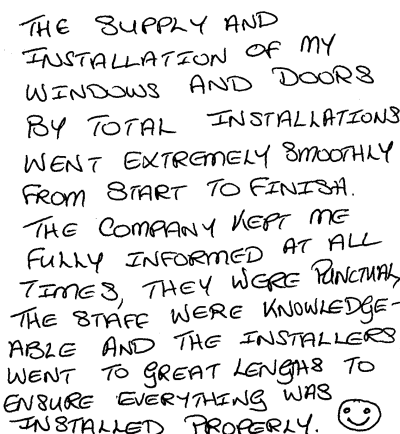 THE SUPPLY AND
INSTALLATION OF MY
WINDOWS AND DOORS
BY TOTAL INSTALLATIONS
WENT EXTREMELY SMOOTHLY
FROM START TO FINISH.
THE COMPANY KEPT ME
FULLY INFORMED AT ALL
TIMES, THEY WERE PUNCTUAL,
THE STAFF WERE KNOWLEDGE-
ABLE AND THE INSTALLERS
WENT TO GREAT LENGHS TO
ENSURE EVERYTHING WAS
INSTALLED PROPERLY.